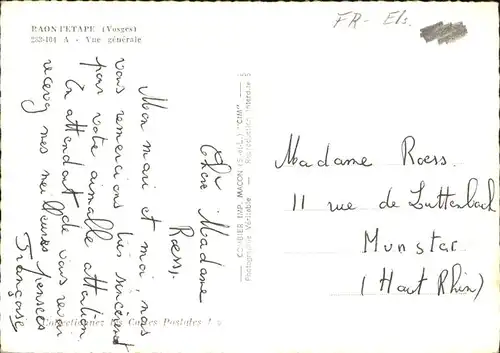 RAON L'ETAPE (Vosges)
232-104 A - Vue générale
FR - Els.
Chère Madame
Roess.
Mon mari et moi, nous
vous remercions très sincèrement
pour votre aimable attention
En attendant de vous revoir
recevez mes meilleures pensées
Françoise
COMBIER IMP. MACON (S.-&-L.) "CIM"
Photographie Véritable - Reproduction interdite
Collectionnez les Cartes Postales
Madame Roess.
11 rue de Luttenbach
Munster
(Haut Rhin)